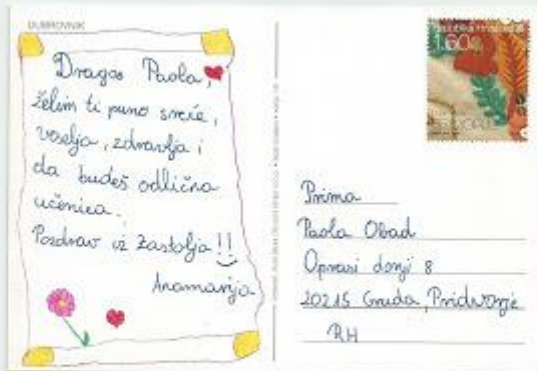 DUBROVNIK
Draga Paola,
želim ti puno sreće,
veselja, zdravlja i
da budeš odlična
učenica.
Pozdrav iz Zastolja!!
Anamarija
Republika Hrvatska
1.60
Prima
Paola Obad
Oprasi donji 8
20215 Gruda, Pridvorje
RH